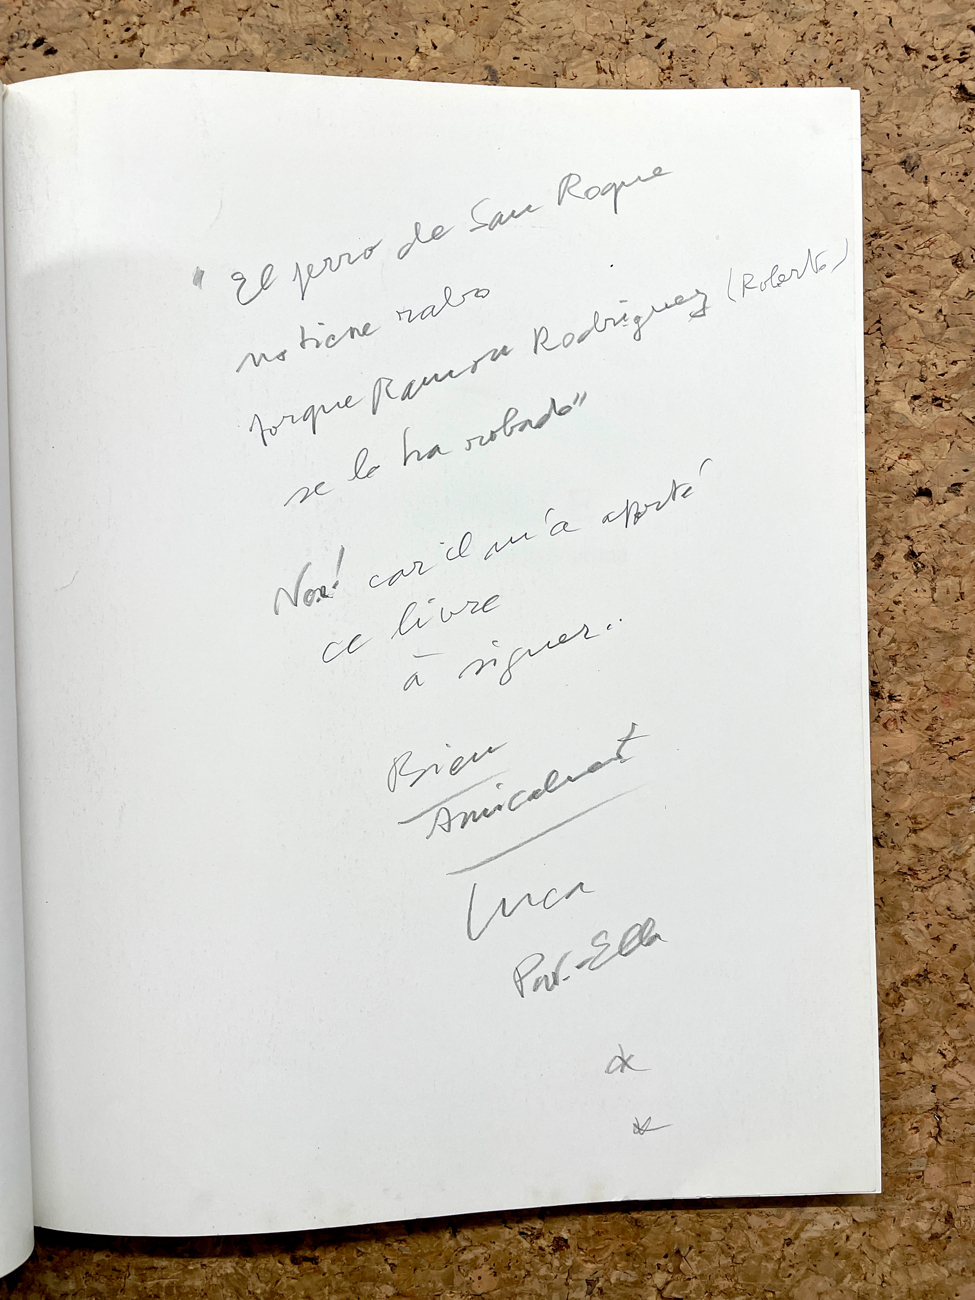 "El perro de San Roque
no tiene rabo
porque Ramon Rodriguez (Roberto)
se lo ha robado"
Non! car il m'a apporté
ce livre
à signer..
Bien
Amicalement
Luca